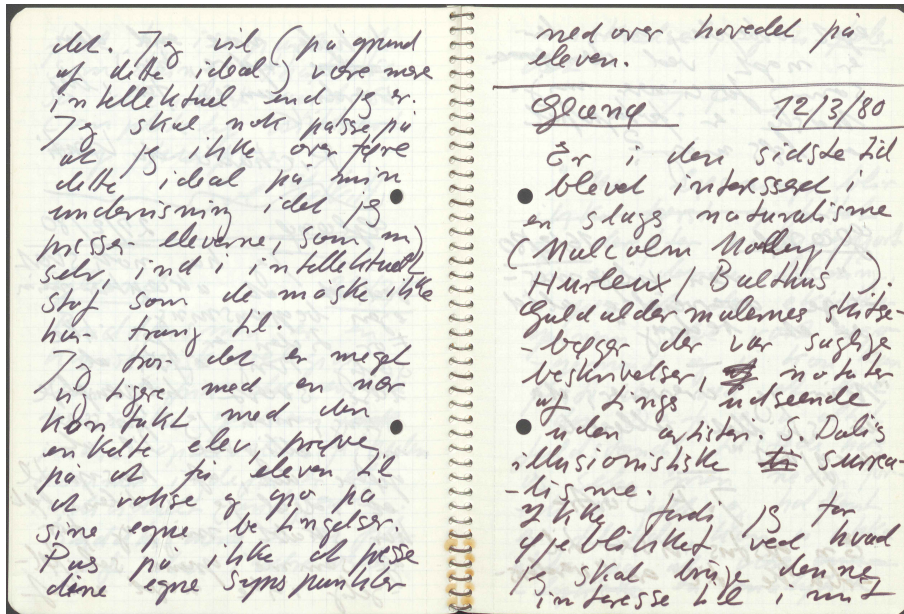 det. Jeg vil (på grund
af dette ideal) være mere
intellektuel end jeg er.
Jeg skal nok passe på
at jeg ikke overfører
dette ideal på min
undervisning idet jeg
presser eleverne, som m)
selv, ind i intellektuelt
stof som de måske ikke
har trang til.
Jeg tror det er meget
vigtigere med en nær
kontakt med den
enkelte elev, prøve
på at få eleven til
at vokse og gro på
sine egne betingelser.
Pas på ikke at presse
dine egne synspunkter
ned over hovedet på
eleven.
12/3/80
Er i den sidste tid
blevet interesseret i
en slags naturalisme
(Malcolm Morley /
Hurleux / Balthus).
Guldaldermalernes skitse-
-bøger der var saglige
beskrivelser, notater
af tings udseende
uden artisteri. S. Dalis
illusionistiske surrea-
-lisme.
Ikke fordi jeg for
øjeblikket ved hvad
jeg skal bruge denne
interesse til i mit